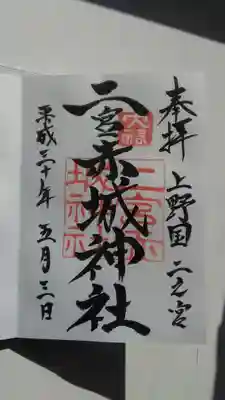 奉拝 上野国 二之宮
二宮赤城神社
平成三十年 五月三日